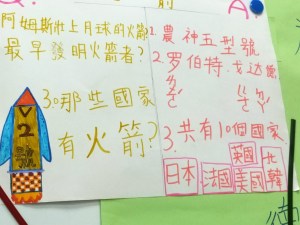 箭
A
阿姆斯壯上月球的火箭?
最早發明火箭者?
3.那些國家
有火箭?
V
2
號
1.農神五型號
2.罗伯特.戈达德
3.共有10個國家
英國
北韓
日本
法國
美國